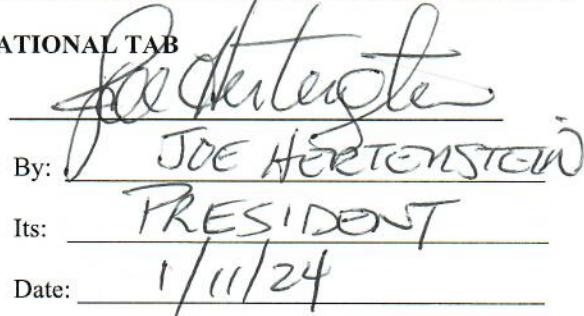 ATIONAL TAB
Joe Hertenstein
By: JOE HERTENSTEIN
Its: PRESIDENT
Date: 1/11/24